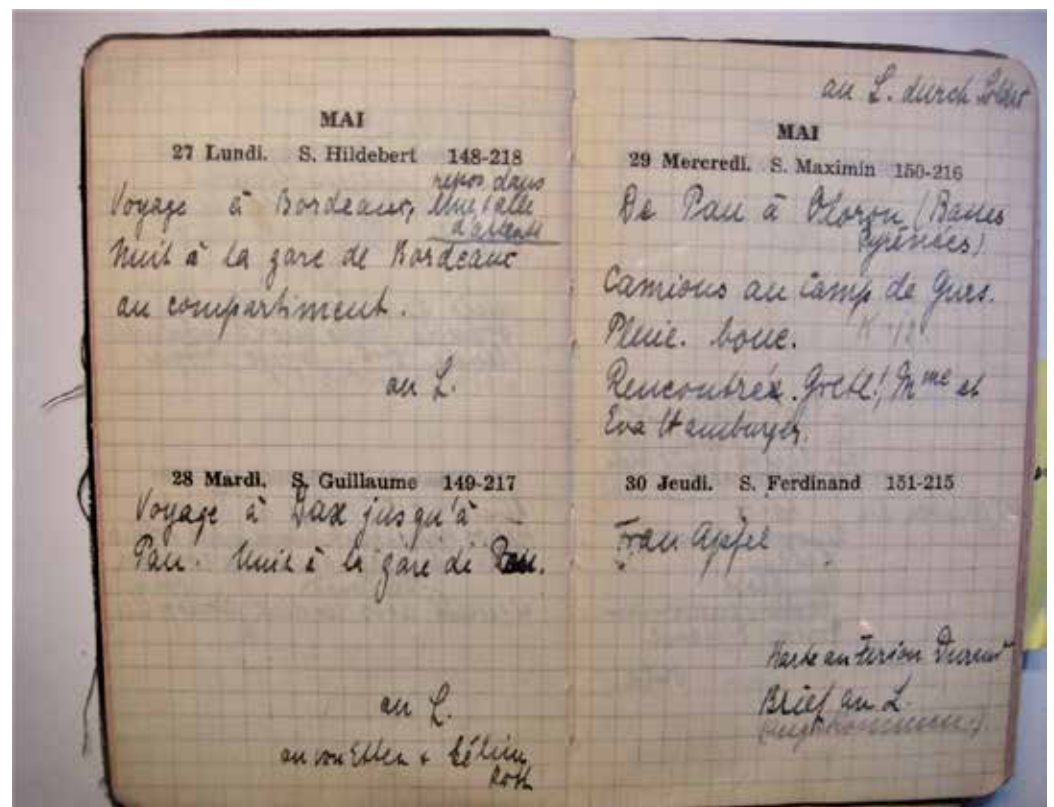 MAI
27 Lundi. S. Hildebert 148-218
Voyage à Bordeaux, repos dans
une salle
d'attente
Nuit à la gare de Bordeaux
au compartiment.
an L.
28 Mardi. S. Guillaume 149-217
Voyage à Dax jusqu'à
Pau. Nuit à la gare de Pau.
an L.
an von Etten +
Roth
an L. durch
MAI
29 Mercredi. S. Maximin 150-216
De Pau à Oloron (Basses
Pyrénées)
Camions au camp de Gurs.
Pluie. boue.
Rencontrée. Gretl! Mme et
Eva Hamburger.
30 Jeudi. S. Ferdinand 151-215
Frau Apfel
Karte an
Brief an L.